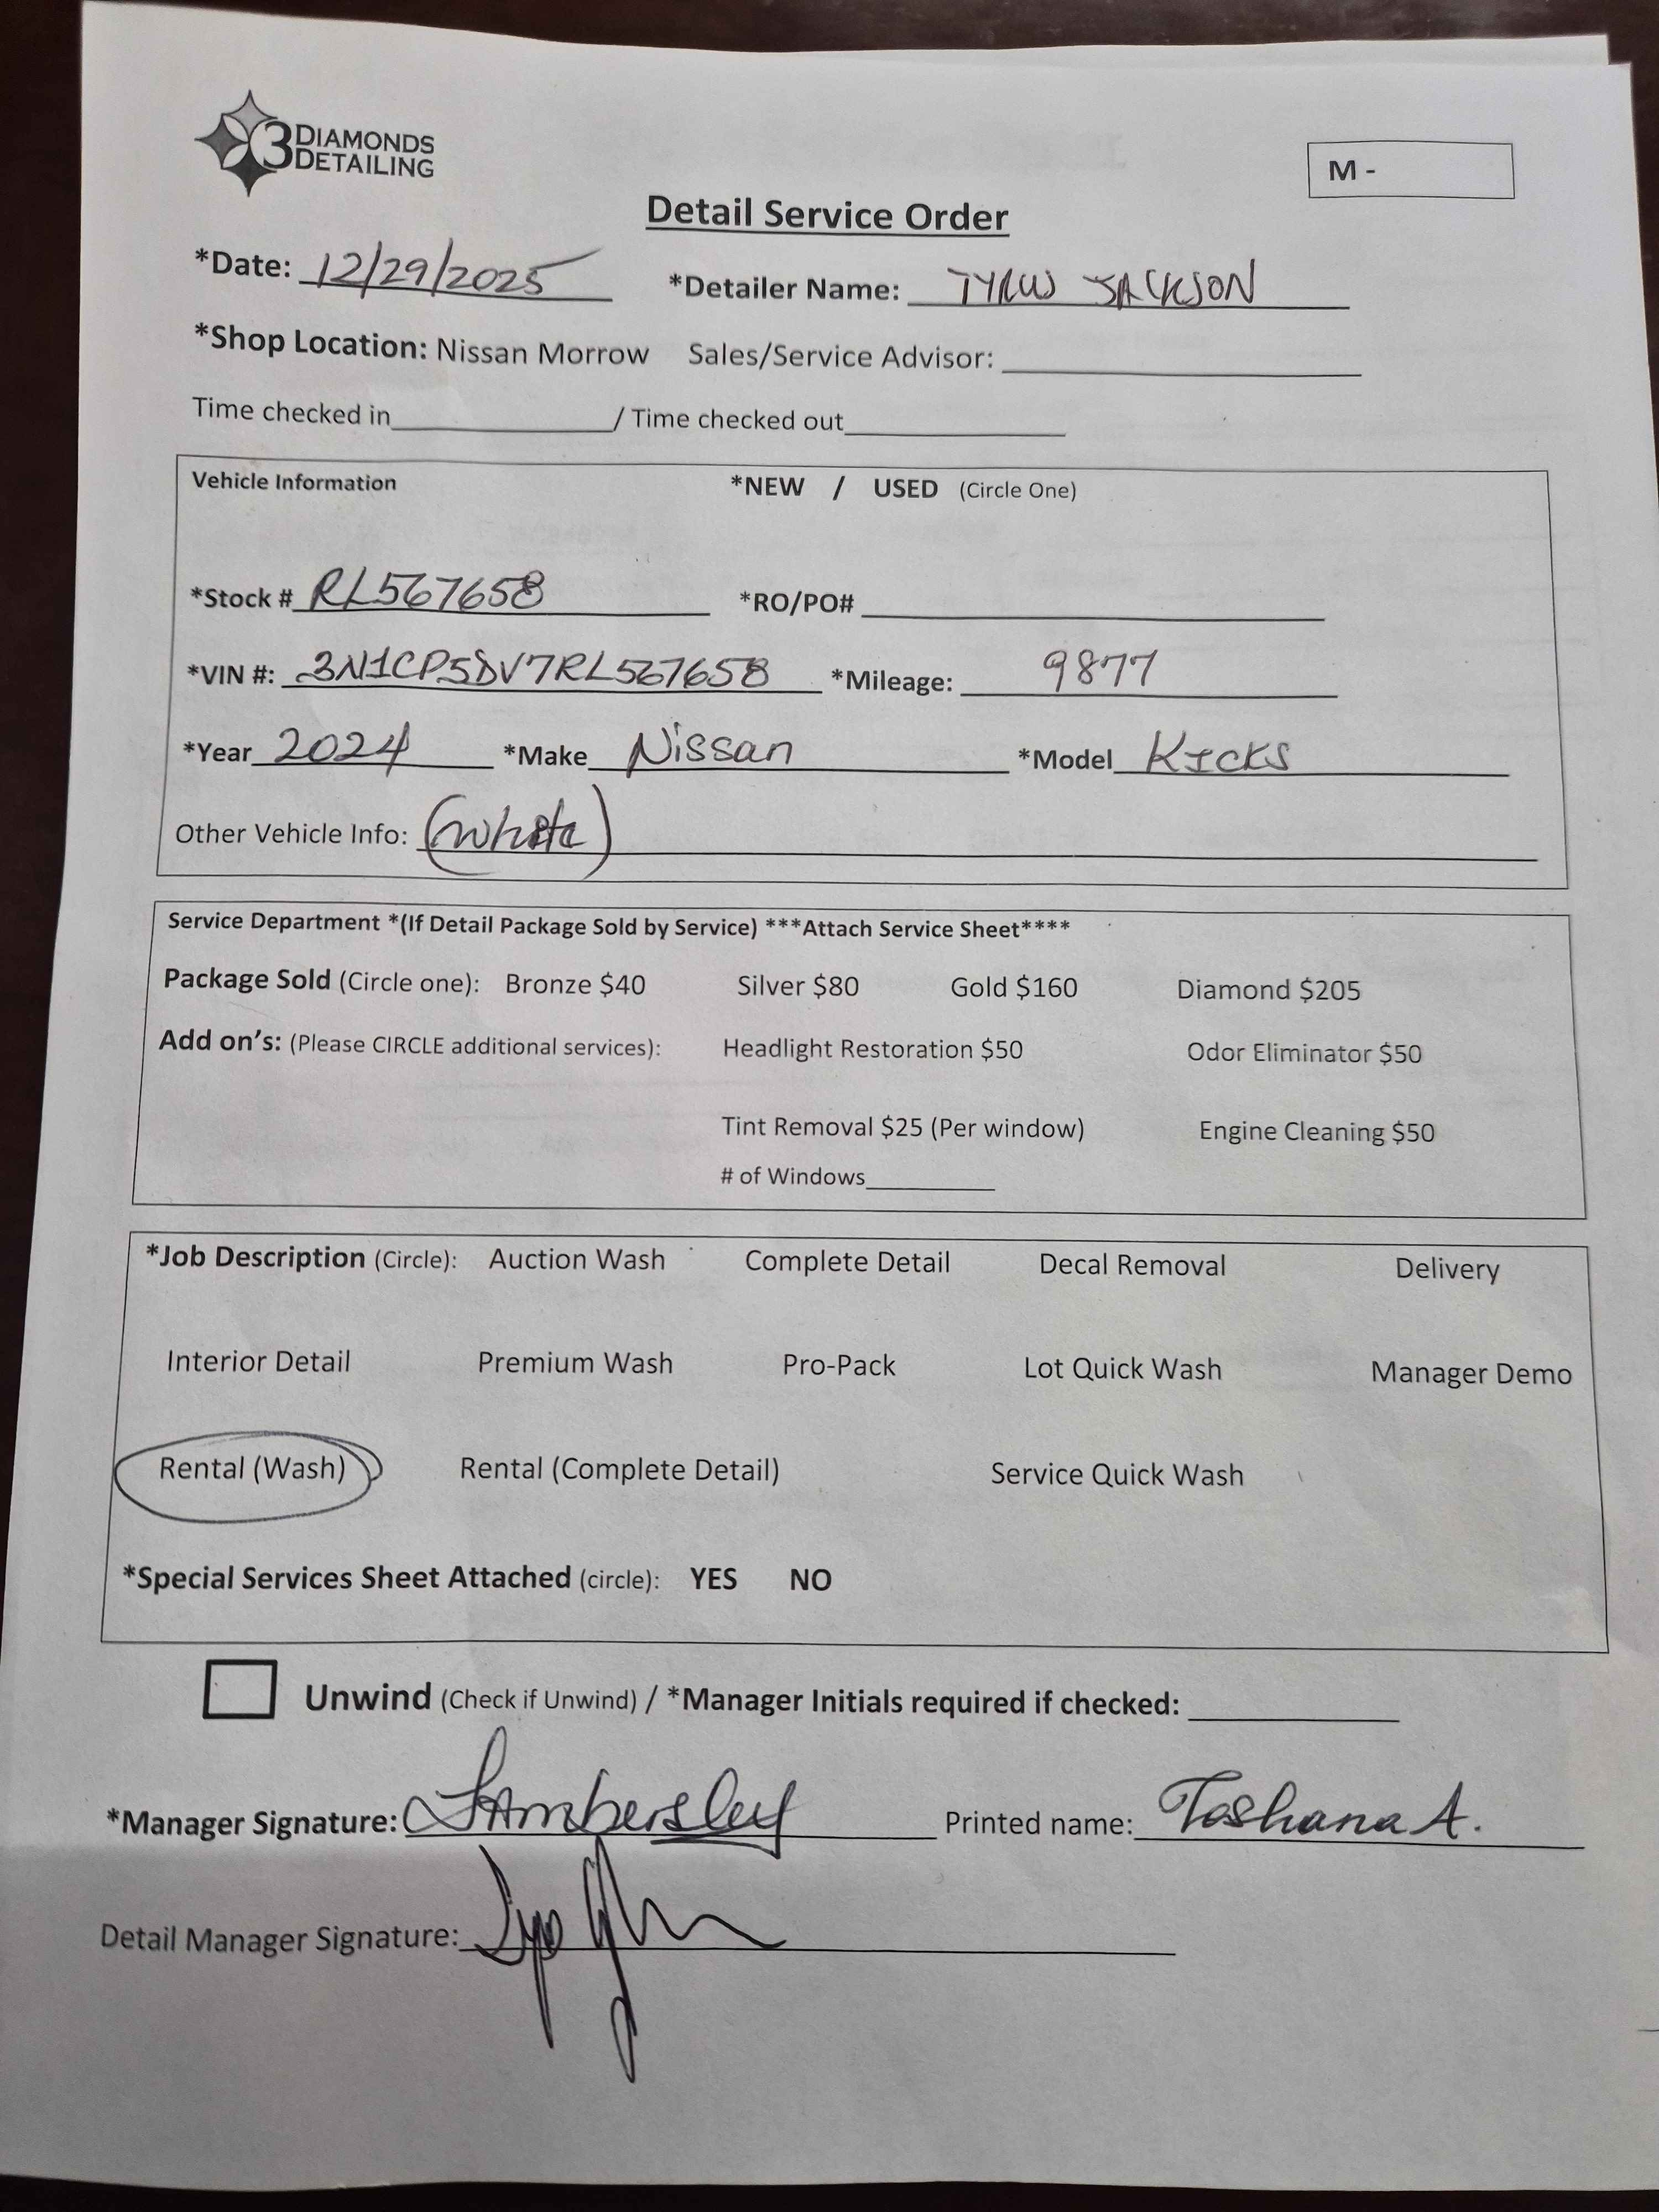 3 DIAMONDS
DETAILING
M -
Detail Service Order
*Date: 12/29/2025 *Detailer Name: JACKSON
*Shop Location: Nissan Morrow Sales/Service Advisor:
Time checked in / Time checked out
Vehicle Information *NEW / USED (Circle One)
*Stock # RL567658 *RO/PO#
*VIN #: 3N1CP5DV7RL567658 *Mileage: 9877
*Year 2024 *Make Nissan *Model KICKS
Other Vehicle Info: (White)
Service Department *(If Detail Package Sold by Service) ***Attach Service Sheet****
Package Sold (Circle one): Bronze $40 Silver $80 Gold $160 Diamond $205
Add on's: (Please CIRCLE additional services): Headlight Restoration $50 Odor Eliminator $50
Tint Removal $25 (Per window) Engine Cleaning $50
# of Windows
*Job Description (Circle): Auction Wash Complete Detail Decal Removal Delivery
Interior Detail Premium Wash Pro-Pack Lot Quick Wash Manager Demo
Rental (Wash) Rental (Complete Detail) Service Quick Wash
*Special Services Sheet Attached (circle): YES NO
Unwind (Check if Unwind) / *Manager Initials required if checked:
*Manager Signature: Printed name: Toshana A.
Detail Manager Signature: